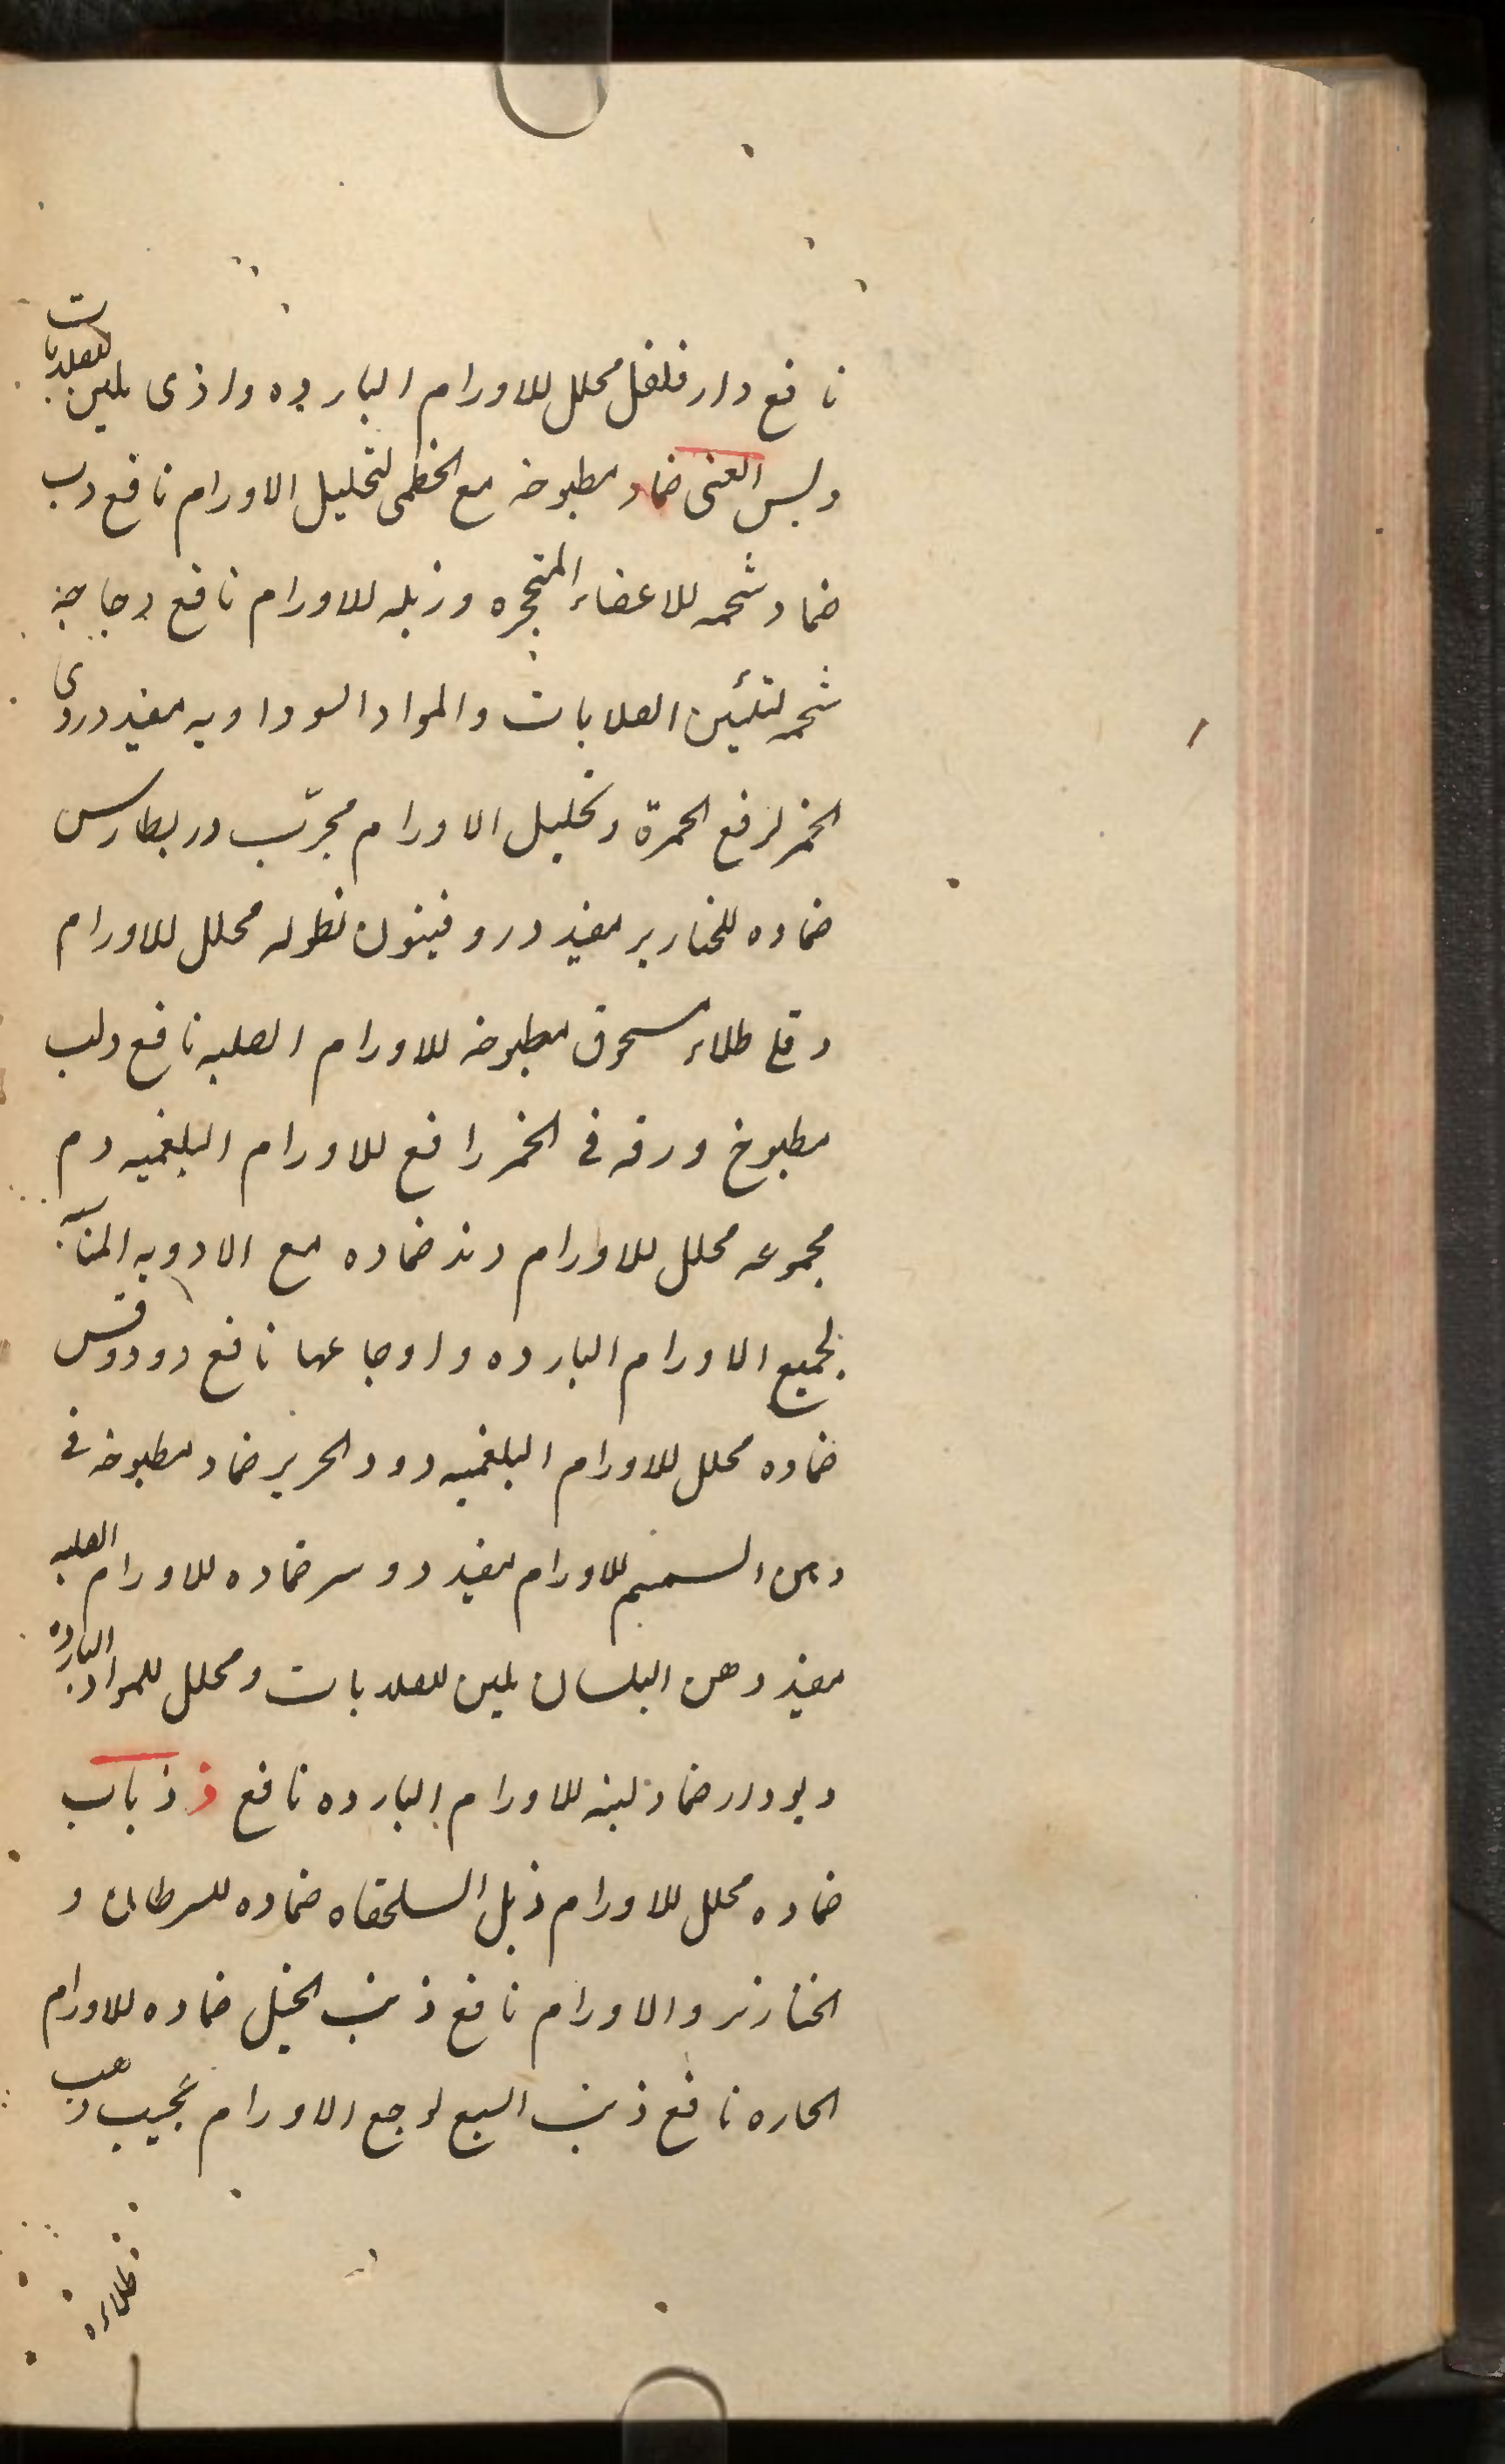 نافع دارفلفل محلل للاورام البارده واذی ملین للصلابات
دبس العنی ضماد مطبوخه مع الخطمی لتحلیل الاورام نافع دب
ضماد شحمه للاعضاء المتحجره وزبله للاورام نافع دجاجه
شحمه لتلیین الصلابات والمواد السوداویه مفید دردی
الخمر لرفع الحمرة وتحلیل الاورام مجرّب دربطارس
ضماده للخنازیر مفید دروفینون نطوله محلل للاورام
دقلی طلاء مسحوق مطبوخه للاورام الصلبه نافع دلب
مطبوخ ورقه فی الخمر رافع للاورام البلغمیه دم
مجموعه محلل للاورام دند ضماده مع الادویه المناسبه
لجمیع الاورام البارده واوجاعها نافع دودوقس
ضماده محلل للاورام البلغمیه دود الحریر ضماد مطبوخه فی
دهن السمسم للاورام مفید دوسر ضماده للاورام الصلبه
مفید دهن البلسان ملین للصلابات ومحلل للمواد البارده
دیودار ضماد لبنه للاورام البارده نافع ذ ذباب
ضماده محلل للاورام ذبل السلحفاه ضماده للسرطان و
الخنازیر والاورام نافع ذنب الخیل ضماده للاورام
الحاره نافع ذنب السبع لوجع الاورام عجیب ذهب
طلاءه